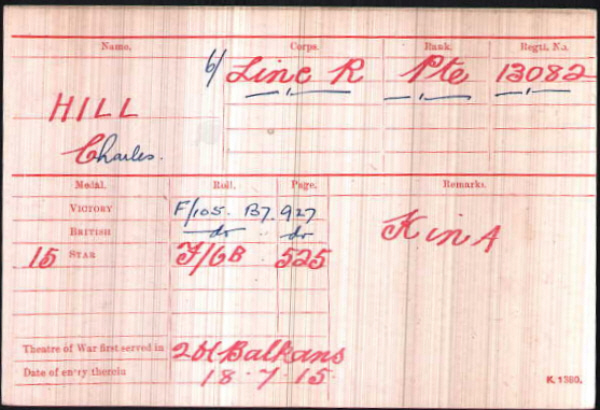 Name. Corps. Rank. Regtl. No.
6/ Linc R Pte 13082
HILL
Charles.
Medal. Roll. Page. Remarks.
VICTORY F/105. B7. 927
BRITISH do do
15 STAR F/6B 525
K in A
Theatre of War first served in Balkans
Date of entry therein 18.7.15
K. 1380.